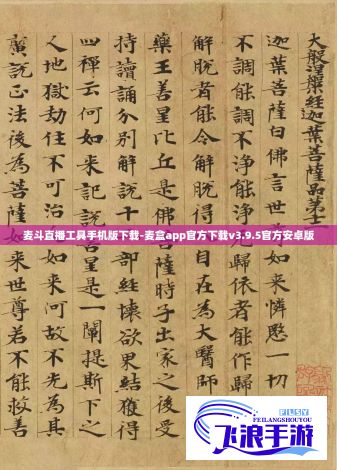 大般涅槃經迦葉菩薩品第十
迦葉菩薩白佛言世如來憐愍一切
不調能調不淨能淨歸依者能作歸
解脫者能令解脫自在為大醫師
藥王善星比丘是佛菩薩時子出家之後受
持讀誦分別解說十部經壞欲界結獲得
四禪云何如來記說是一闡提斯下之
人地獄劫住不可治如來何故不先為其
演說正法後為菩薩如世尊若不能救善
麦斗直播工具手机版下载-麦盒app官方下载v3.9.5官方安卓版
FLSY
FEILANGSHOUYOU
飞浪手游